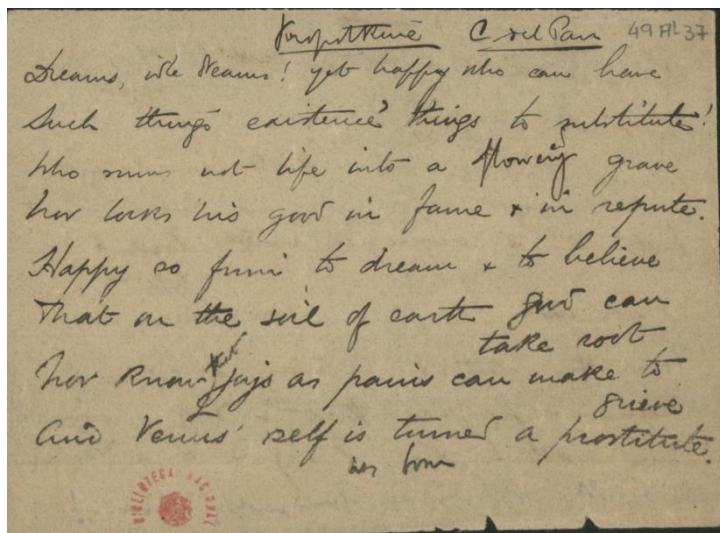 Kropotkine C del Pan 49A1-37
Dreams, idle dreams! yet happy who can have
Such things existence' things to substitute!
Who runs not life into a flowering grave
Nor locks his good in fame & in repute.
Happy so firm to dream & to believe
That on the soil of earth good can
take root
Nor know that joys as pains can make to
grieve
And Venus' self is turned a prostitute.
is born
BIBLIOTECA NACIONAL